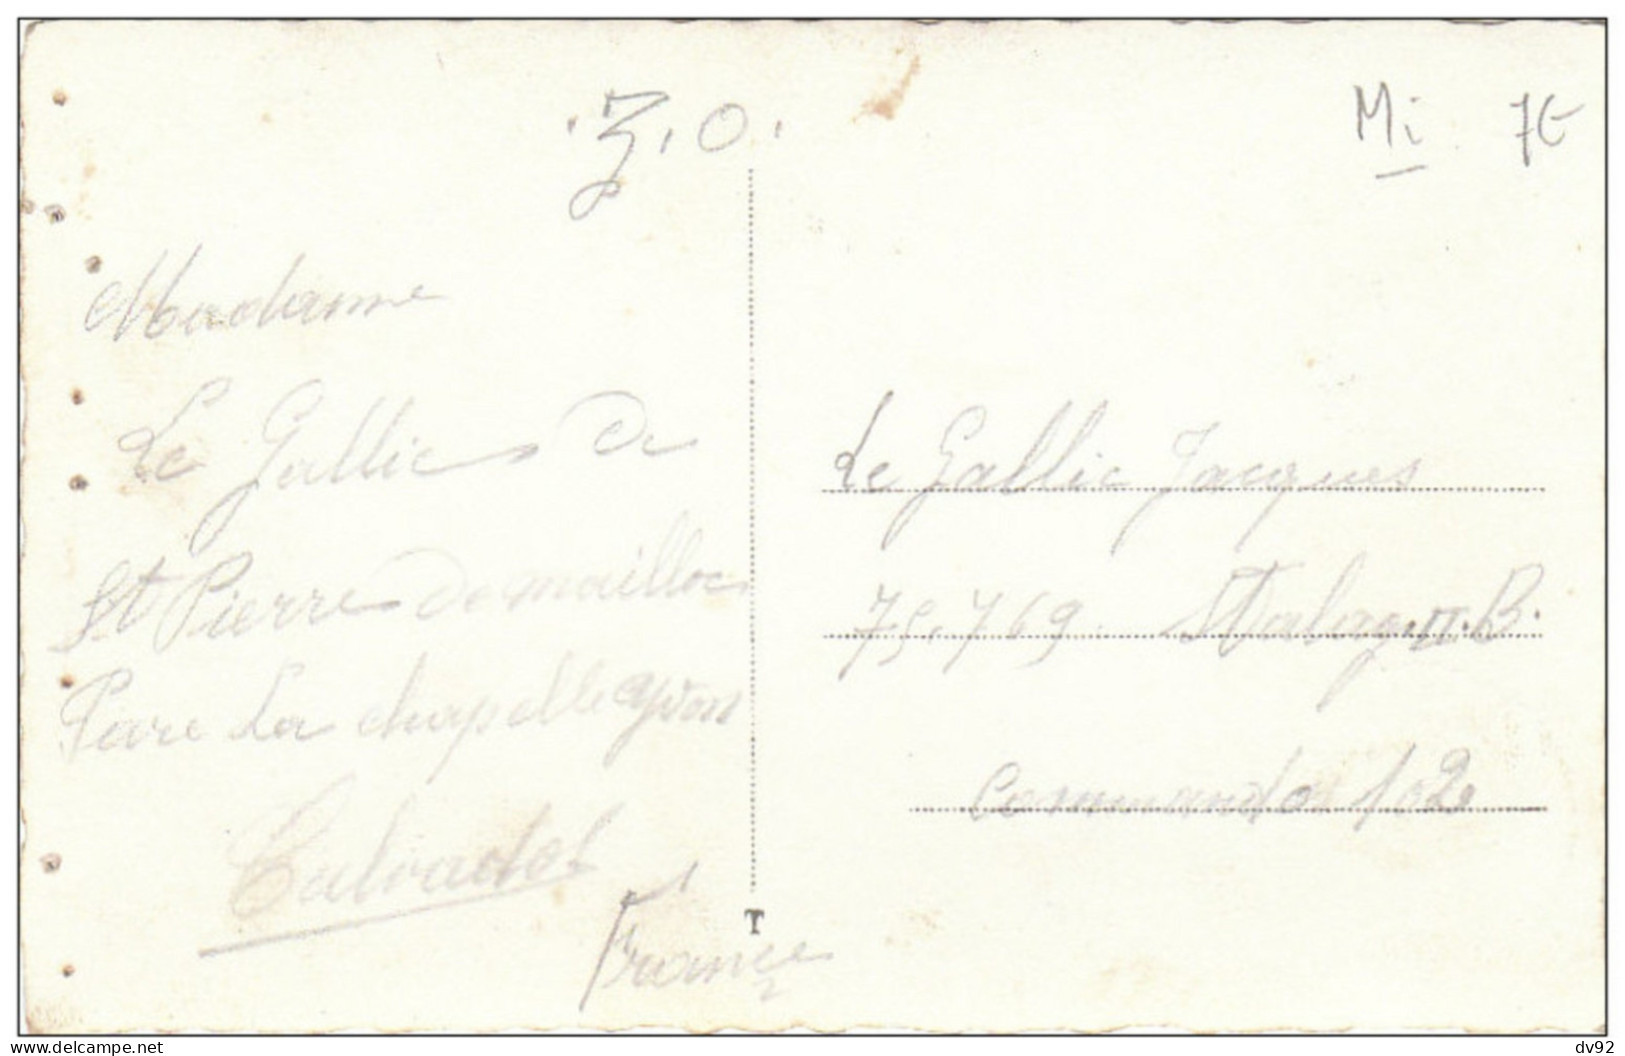 . 3 . 0 .
Mi 7€
Madame
Le Gallic De
St Pierre de mailloc
Pare La chapelle yvon
Calvados
France
T
Le Gallic Jacques
75.769 Stalag. II. B.
Commando 102
www.delcampe.net
dv92